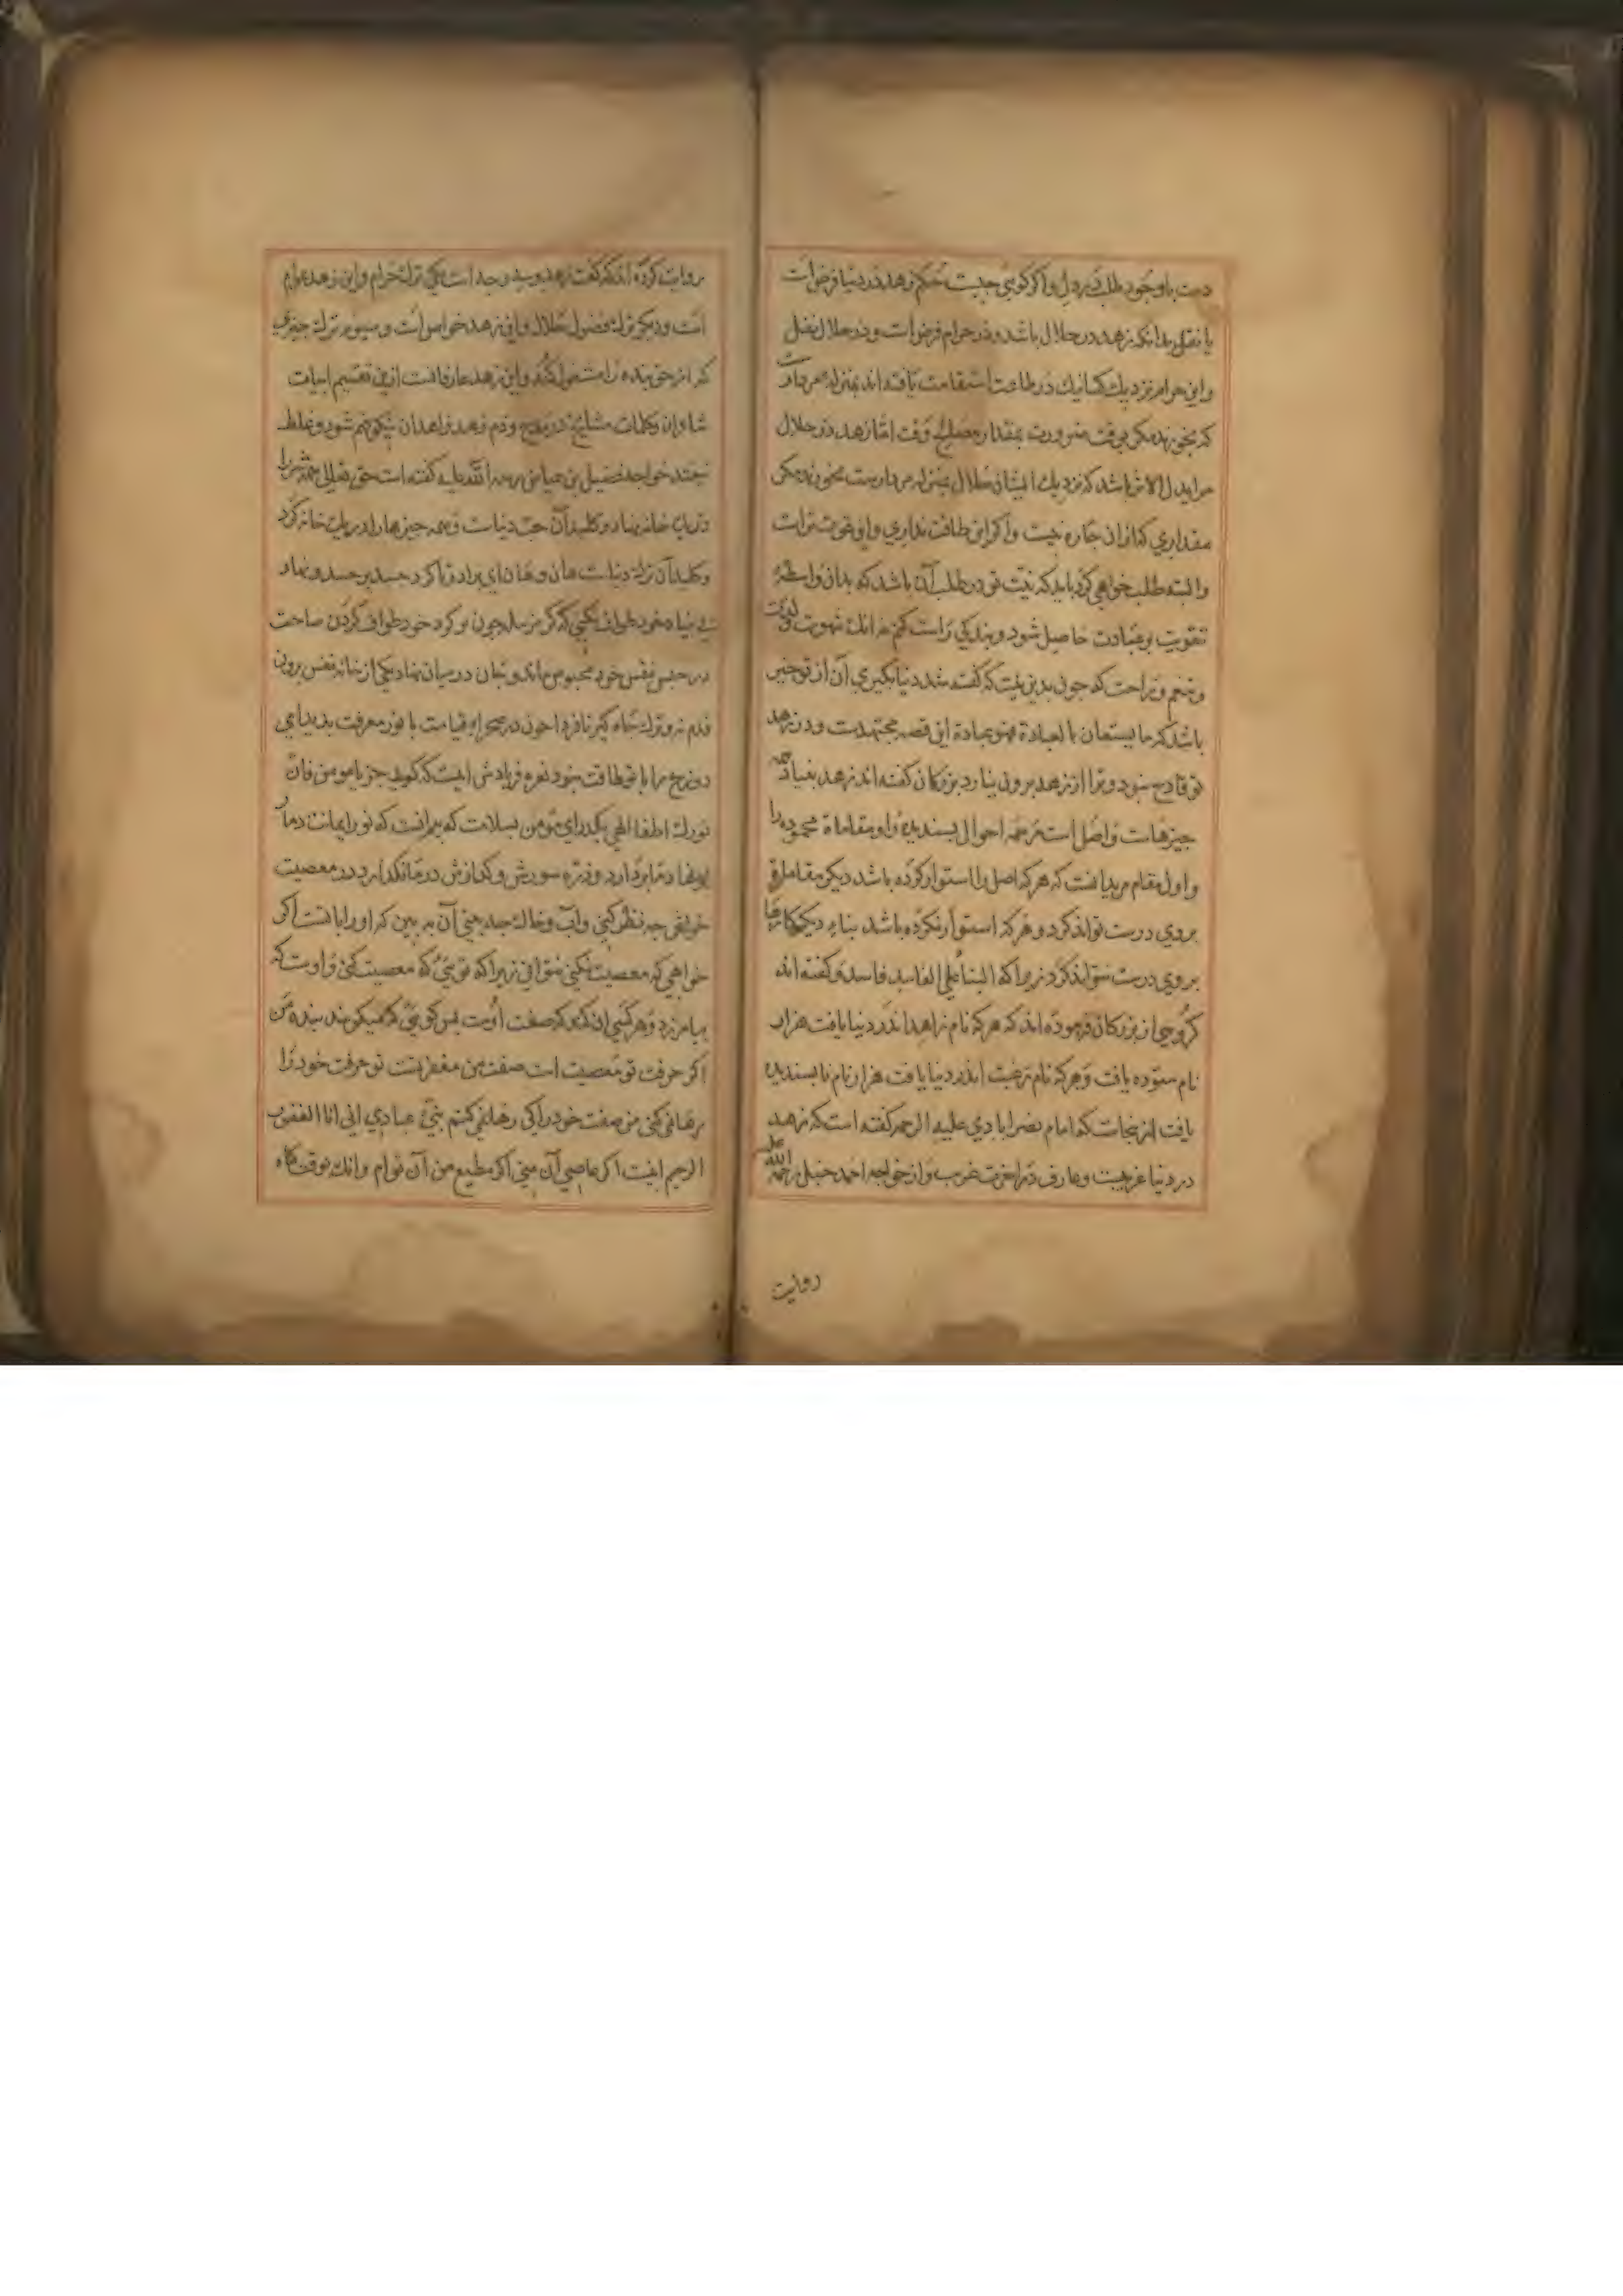 دست با وجود طلب در دل و اکر کوئی جیست حکم زهد در دنیا فرض است
یا نفل بدانکه زهد در حلال باشد و در حرام فرض است و در حلال نفل
و این حرام نزدیک کسانیک در طاعت استقامت یافته اند بمنزله مردارست
که نخورند مکر بوقت ضرورت بمقدار مصلحت وقت اما زهد در حلال
مر ابدال را باشد که نزدیک ایشان حلال بمنزله مردارست نخورند مکر
مقداری کزان جاره نیست و اکر این طاقت نداری و این قوت تراست
و البته طلب خواهی کرد باید که نیت تو در طلب آن باشد که بدان واسطه
تقویت بر عبادت حاصل شود و بندکی راست کنم نه انک شهوت و لذت
و تنعم و راحت که جون بدین نیت که کفته شد دنیا بکیری آن از تو خیر
باشد که ما یستعان بالعبادة فهو عبادة این قصه مجتهدست و در زهد
تو قادح نبود و ترا از زهد برون نیارد بزرکان کفته اند زهد بنیاد همه
جیزهاست و اصل است مر همه احوال پسندیده را و مقاماة محموده را
و اول مقام مریدانست که هر که اصل را استوار کرده باشد دیکر مقامات
بروی درست تواند کرد و هر که استوار نکرده باشد بناء دیکر کارها
بروی درست نتواند کرد زیرا که البناء علی الفاسد فاسد و کفته اند
کروهی از بزرکان فرموده اند که هر که نام زاهد اندر دنیا یافت هزار
نام ستوده یافت و هر که نام رغبت اندر دنیا یافت هزار نام نا بسندیده
یافت از ینجاست که امام نصر ابادی علیه الرحمه کفته است که زهد
در دنیا غریبست و عارف در اخرت غریب و از خواجه احمد حنبل رحمة الله علیه
روایت
روایت کرده اند که کفت زهد بر سه وجه است یکی ترک حرام و این زهد عوام
است و دیکر ترک فضول حلال و این زهد خواص است و سیوم ترک جیزی
که از حق بنده را مشغول کند و این زهد عارفانست ازین تقسیم ابیات
شاوان و کلمات مشایخ در مدح و ذم زهد و زاهدان نیکو فهم شود و غلط
نیفتد خواجه فضیل بن عیاض رحمه الله علیه کفته است حق تعالی همه شر را
در یک خانه نهاد و کلید آن حب دنیاست و همه جیزها را در یک خانه کرد
و کلید آن ترک دنیاست هان و هان ای برادر تا کرد جسد بر حسد و نهاد
بی بنیاد خود طواف نکنی که کر هزار سال جون تو کرد خود طواف کردن صاحت
در حبس نفس خود محبوس ماند و بجان در میان نهاد یکی از خانه نفس برون
قدم نه و ترک جاه کیر تا فردا جون در صحراء قیامت با نور معرفت بدید ایی
دوزخ را با تو طاقت نبود نعره فریادش اینست که کوید جز یا مومن فان
نورک اطفا لهبی بکذر ای مؤمن بسلامت که بیم انست که نور ایمانت دمار
از نهاد ما بردارد و ذره سوزش و کدازش در ما نکذارد در معصیت
خود جه نظر کنی و آب و خاک جه بینی آن به بین که او را بانست اکر
خواهی که معصیت نکنی نتوانی زیرا که تو بنی که معصیت کنی و اوست که
بیامرزد و هر کسی ان کند که صفت اوست پس کوئی که میکوید بنده من
اکر حرفت تو معصیت است صفت من مغفرتست تو حرفت خود را
رها نمی کنی من صفت خود را کی رها نمی کنم نبئ عبادی انی انا الغفور
الرحیم اینست اکر عاصی آن منی اکر مطیع من آن توام و انک بوقت کاه